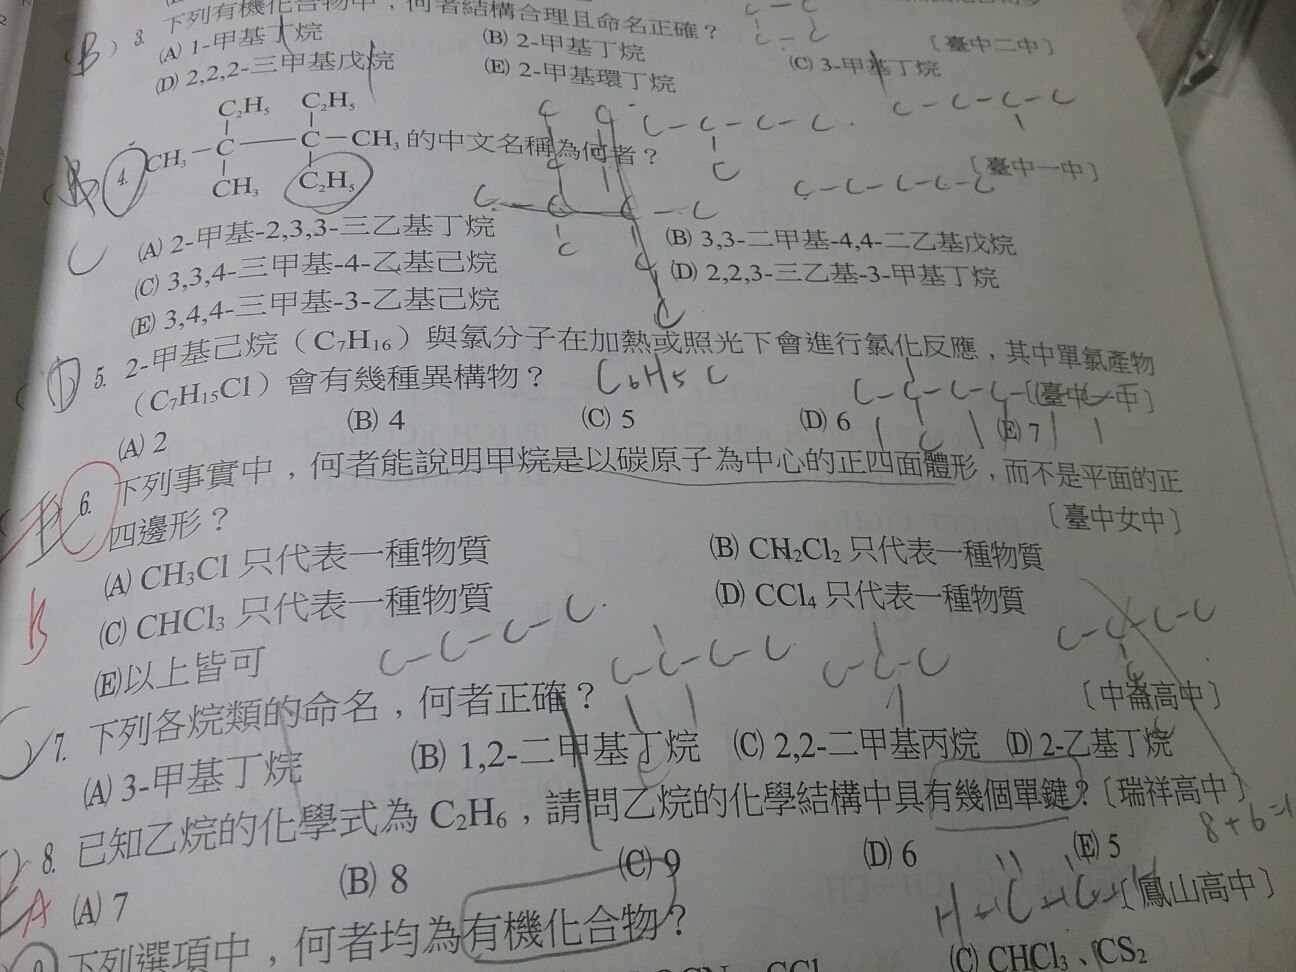 (B) 3. 下列有機化合物中，何者結構合理且命名正確？
〔臺中二中〕
(A) 1-甲基丁烷 (B) 2-甲基丁烷 (C) 3-甲基丁烷
(D) 2,2,2-三甲基戊烷 (E) 2-甲基環丁烷
C₂H₅ C₂H₅
4. CH₃－C－C－CH₃ 的中文名稱為何者？ 〔臺中一中〕
CH₃ C₂H₅
C (A) 2-甲基-2,3,3-三乙基丁烷 (B) 3,3-二甲基-4,4-二乙基戊烷
(C) 3,3,4-三甲基-4-乙基己烷 (D) 2,2,3-三乙基-3-甲基丁烷
(E) 3,4,4-三甲基-3-乙基己烷
(D) 5. 2-甲基己烷（C₇H₁₆）與氯分子在加熱或照光下會進行氯化反應，其中單氯產物
（C₇H₁₅Cl）會有幾種異構物？ C₆H₅C 〔臺中一中〕
(A) 2 (B) 4 (C) 5 (D) 6 (E) 7
6. 下列事實中，何者能說明甲烷是以碳原子為中心的正四面體形，而不是平面的正
四邊形？ 〔臺中女中〕
(A) CH₃Cl 只代表一種物質 (B) CH₂Cl₂ 只代表一種物質
B (C) CHCl₃ 只代表一種物質 (D) CCl₄ 只代表一種物質
(E)以上皆可
C-C-C-C
7. 下列各烷類的命名，何者正確？ 〔中崙高中〕
(A) 3-甲基丁烷 (B) 1,2-二甲基丁烷 (C) 2,2-二甲基丙烷 (D) 2-乙基丁烷
8. 已知乙烷的化學式為 C₂H₆，請問乙烷的化學結構中具有幾個單鍵？〔瑞祥高中〕
8+6=
A (A) 7 (B) 8 (C) 9 (D) 6 (E) 5
下列選項中，何者均為有機化合物？ 〔鳳山高中〕
(C) CHCl₃、CS₂